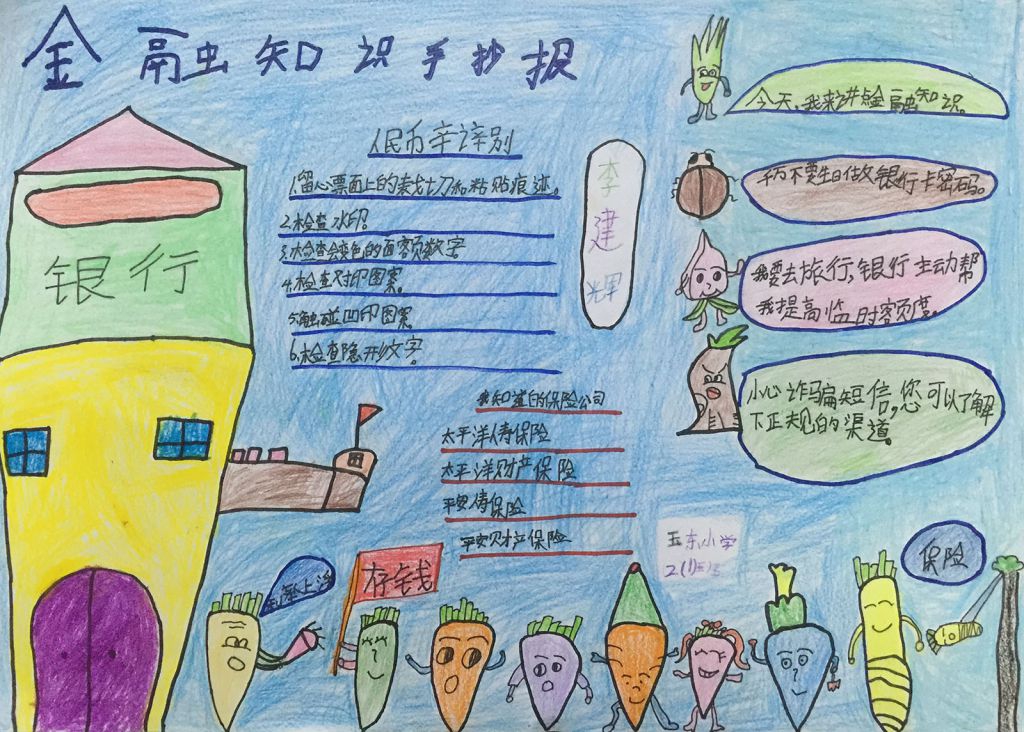 金融知识手抄报
人民币辛讳别
1.留心票面上的裁切和粘贴痕迹。
2.检查水印。
3.检查会变色的面额数字
4.检查对印图案。
5.触碰凹印图案
6.检查隐形文字。
李建辉
今天,我来讲点金融知识。
千万不要生日做银行卡密码。
我要去旅行,银行主动帮
我提高临时额度。
小心诈骗短信,您可以了解
下正规的渠道。
银行
我知道的保险公司
太平洋人寿保险
太平洋财产保险
平安人寿保险
平安财产保险
玉东小学
存钱
保险